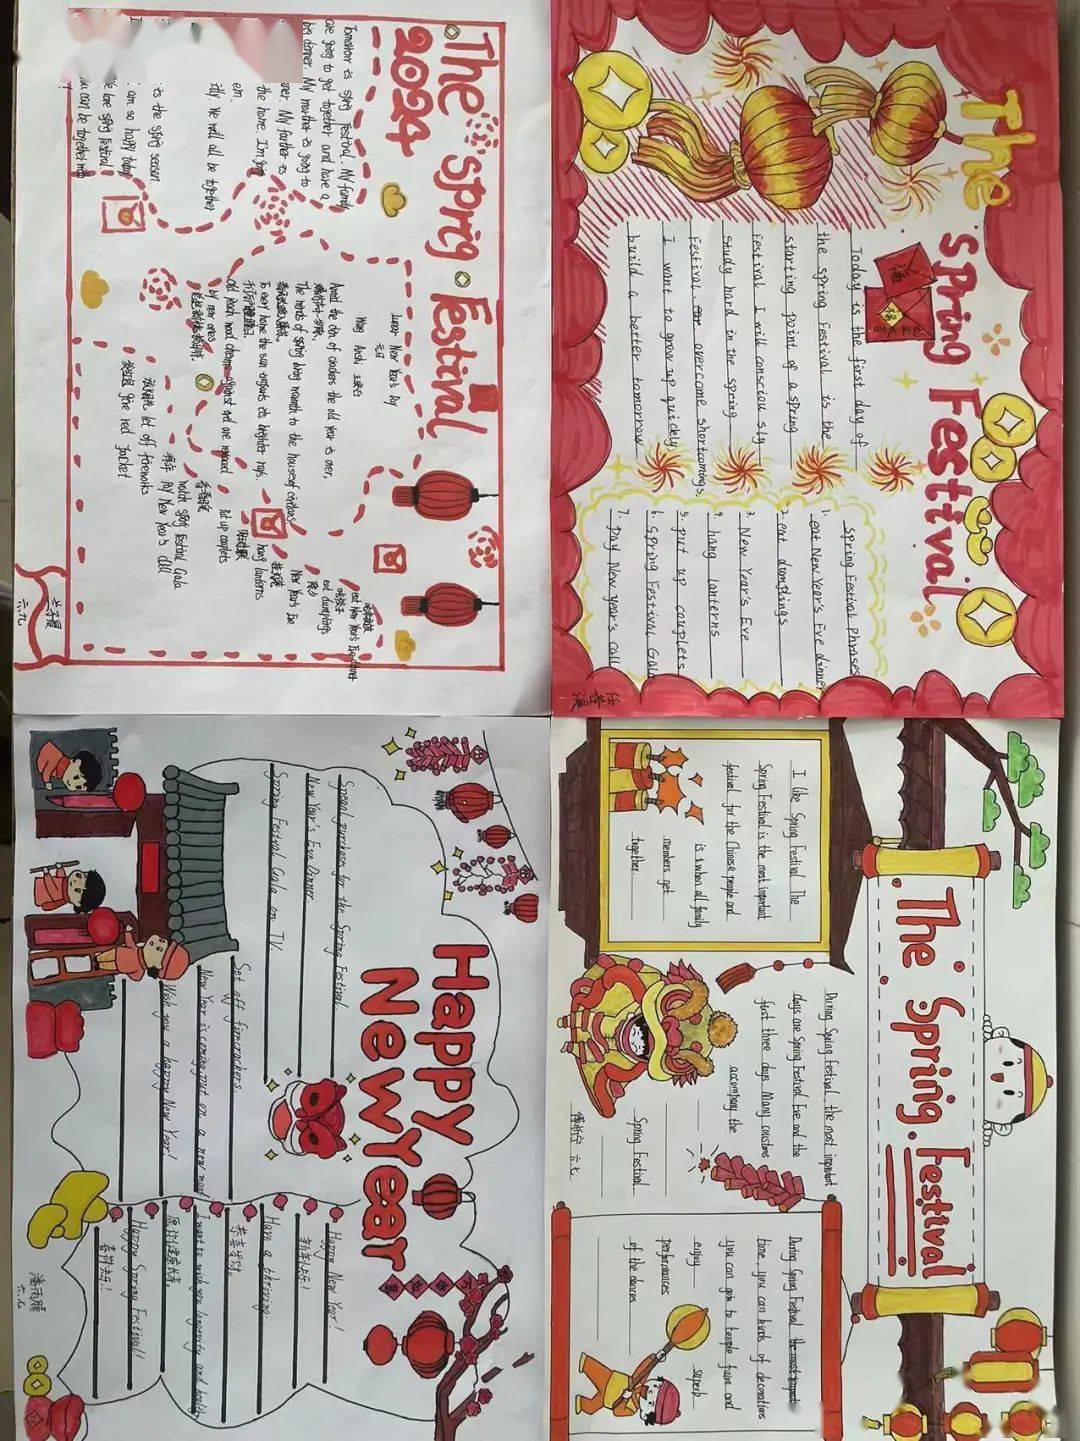 The Sprig Festival
2024
Tomorrow is spring festival. My family
are going to get together and have a
big dinner. My mother is going to
the home. I'm
em.
will all be together
is the spring season.
I am so happy today
love spring festival
can be together with
Lunar New Year's Day
元日
Wang Anshi 王安石
Amid the din of crackers the old year is over,
The winds of spring bring warmth to the house of
To every home the sun imparts its brighter rays,
Old peach wood charms against evil are replaced
by new ones
eat New Year's Eve dinner
eat dumplings
New Year's Eve
hang lanterns
put up couplets
watch Spring Festival Gala
pay New Year's call
let off fireworks
give red packet
六.九
The Spring Festival
Today is the first day of
the spring Festival is the
starting point of a spring
Festival I will consciously
study hard in the spring
Festival, overcome shortcomings,
I want to grow up quickly
build a better tomorrow
Spring Festival Phrases
1. eat New Year's Eve dinner
2. eat dumplings
3. New Year's Eve
4. hang lanterns
5. put up couplets
6. Spring Festival Gala
7. pay New year's call
Happy
New Year
Spread purchases for the Spring Festival.
New Year's Eve Dinner
Spring Festival Gala on TV.
Set off firecrackers.
New Year is coming, put on a new
Wish you a happy New Year!
Happy New Year!
新年快乐!
Have a thriving.
恭喜发财。
I want to wish you longevity and health
愿你健康长寿。
Happy Spring Festival!
春节快乐!
六.七
The Spring Festival
I like Spring Festival. The
Spring Festival is the most important
festival for the Chinese people and
is when all family
members get
together.
During Spring Festival, the most important
days are Spring Festival Eve and the
first three days. Many customs
accompany the
Spring Festival
六.七
During Spring Festival the most
time, you can kinds of decorations
you can go to temple faire and
enjoy superb
performances
of the dances